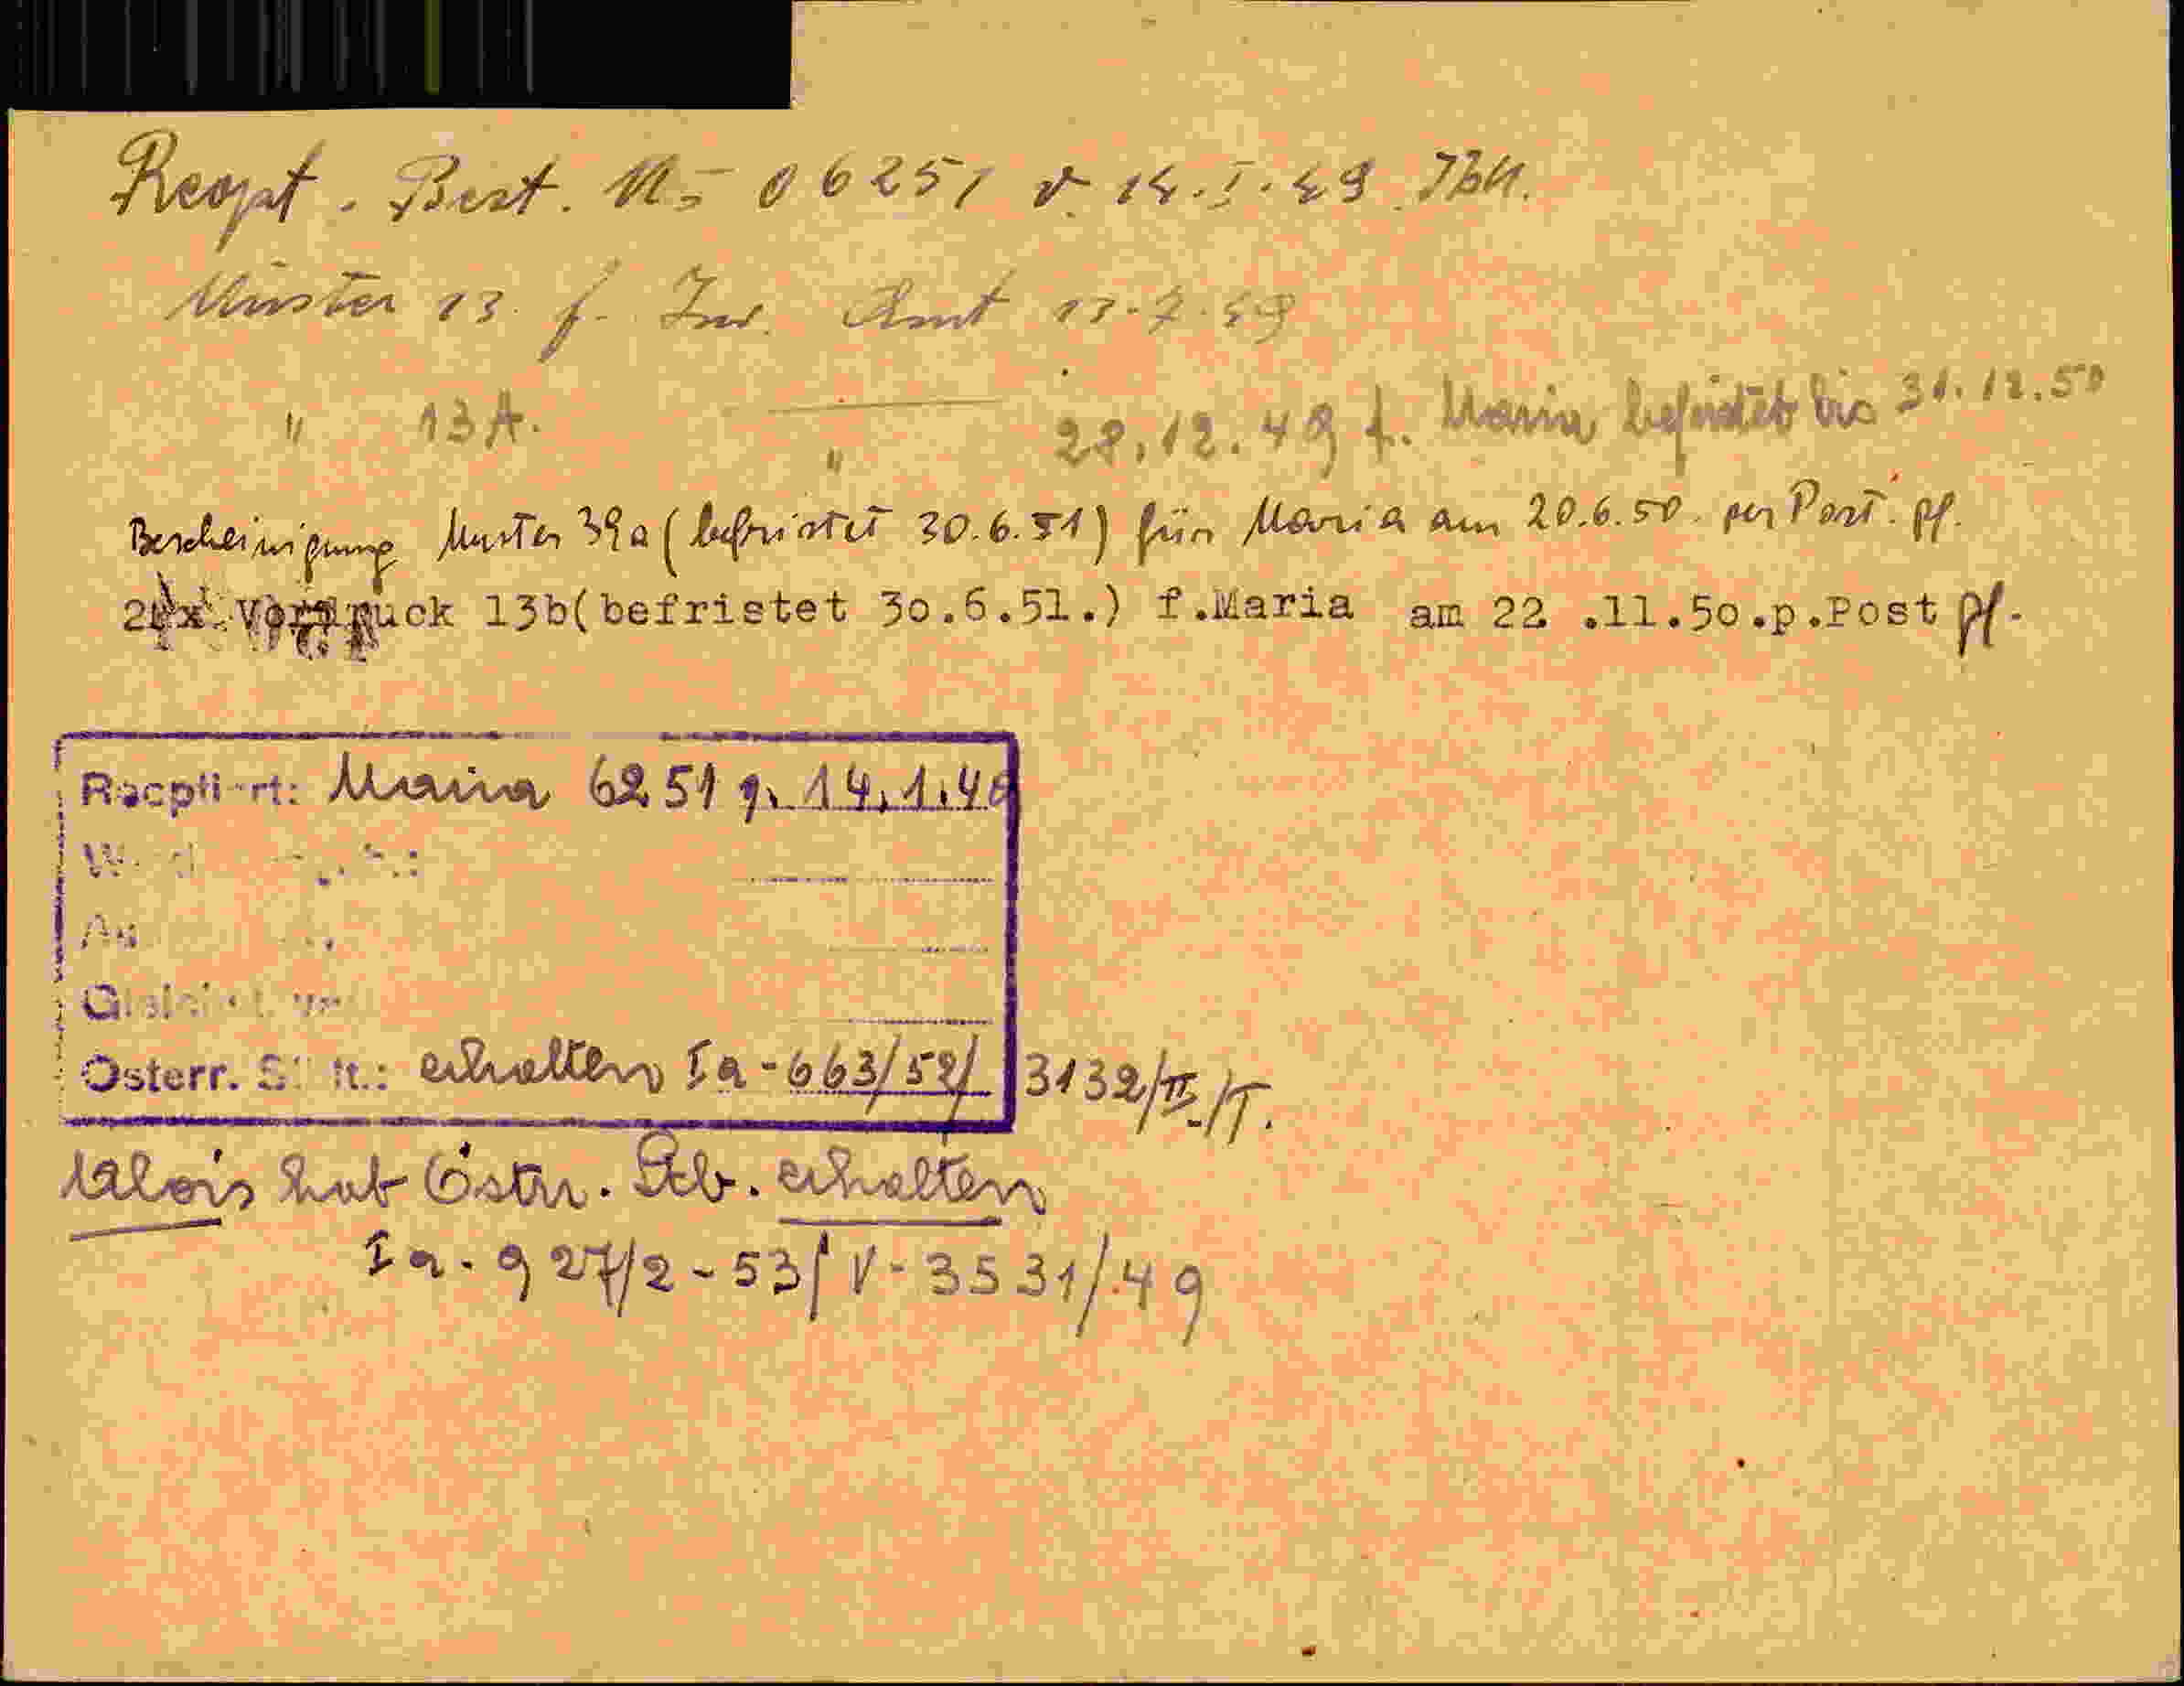 Reopt. Best. No 06251 v. 14.I.49 Ibk.
Muster 13. f. Inv. Amt 13.7.49
" 13 A. " 28.12.49 f. Maria befristet bis 31.12.50
Bescheinigung Muster 39a (befristet 30.6.51) für Maria am 20.6.50. per Post. pf.
2 x Vordruck 13b(befristet 30.6.51.) f.Maria am 22 .11.50.p.Post pf.
Reoptiert: Maria 6251 v. 14.1.49
Österr. St. erhalten Ia-663/52/ 3132/II/T.
Alois hat Östr. Stb. erhalten
Ia-927/2-53/V-3531/49